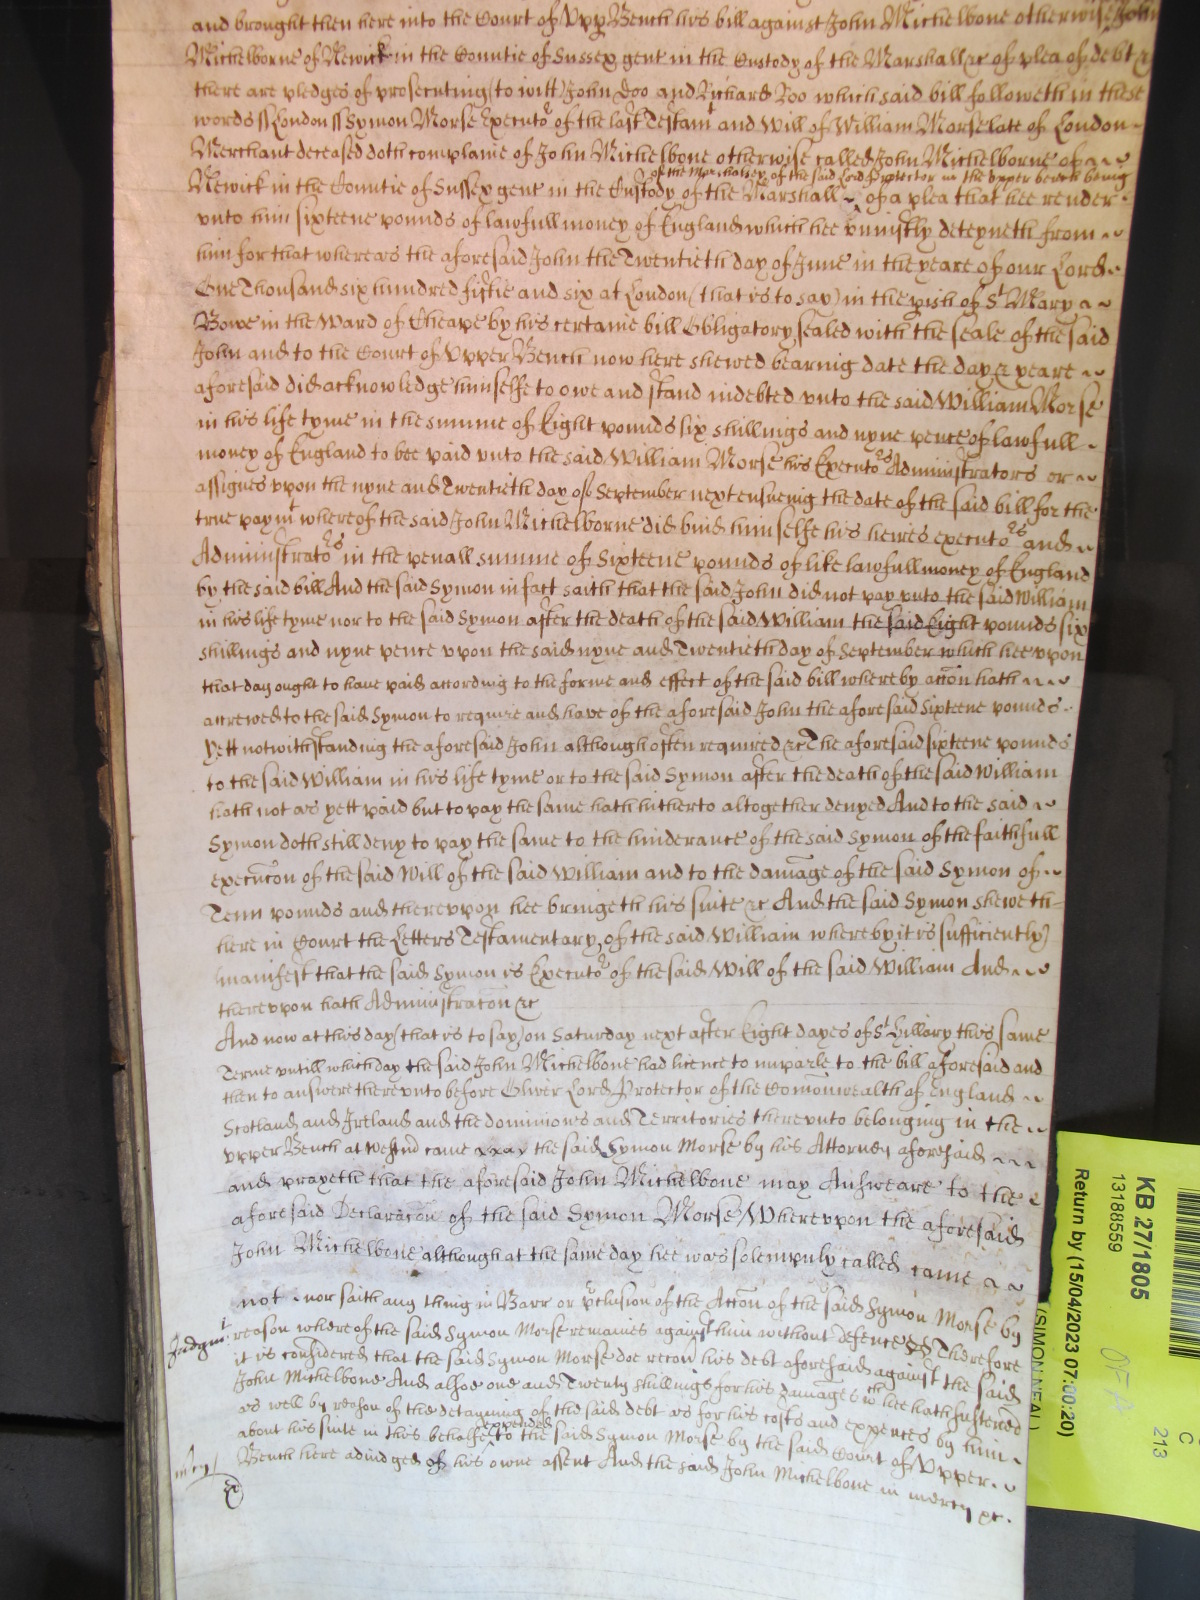 and brought then here into the Court of Upp Bench his bill against John Michelbone otherwise John
Michelborne of Newick in the Countie of Sussex gent in the Custody of the Marshall &c of plea of debt &
there are pledges of prosecuting (to witt) John Doo and Richard Roo which said bill followeth in these
words ss London ss Symon Morse Executor of the last Testamt and Will of William Morse late of London
Merchant deceased doth complaine of John Michelbone otherwise called John Michelborne of
of the Marshalsey of the said Lord Protector in the upper bench being
Newick in the Countie of Sussex gent in the Custody of the Marshall of a plea that hee render
unto him sixteene pounds of lawfull money of England which hee uniustly deteyneth from
him for that whereas the aforesaid John the Twentieth day of June in the yeare of our Lord
One Thousand six hundred fiftie and six at London (that is to say) in the pish of St Mary
Bowe in the Ward of Cheape by his certaine bill Obligatory sealed with the seale of the said
John and to the Court of Upper Bench now here shewed bearing date the day & yeare
aforesaid did acknowledge himselfe to owe and stand indebted unto the said William Morse
in his life tyme in the summe of Eight pounds six shillings and nyne pence of lawfull
money of England to bee paid unto the said William Morse his Executors Administrators or
assignes upon the nyne and Twentieth day of September next ensueing the date of the said bill for the
true paymt whereof the said John Michelborne did bind himselfe his heires executors and
Administrators in the penall summe of Sixteene pounds of like lawfull money of England
by the said bill And the said Symon in fact saith that the said John did not pay unto the said William
in his life tyme nor to the said Symon after the death of the said William the said Eight pounds six
shillings and nyne pence upon the said nyne and Twentieth day of September which hee upon
that day ought to have paid according to the forme and effect of the said bill whereby accon hath
accrewed to the said Symon to require and have of the aforesaid John the aforesaid sixteene pounds
Yett notwithstanding the aforesaid John although often required &c The aforesaid sixteene pounds
to the said William in his life tyme or to the said Symon after the death of the said William
hath not as yett paid but to pay the same hath hitherto altogether denyed And to the said
Symon doth still deny to pay the same to the hinderance of the said Symon of the faithfull
execucon of the said Will of the said William and to the damage of the said Symon of
Tenn pounds and thereupon hee bringeth his suite &c And the said Symon sheweth
here in Court the Letters Testamentary of the said William whereby it is sufficiently
manifest that the said Symon is Executor of the said Will of the said William And
thereupon hath Administracon &c
And now at this day (that is to say) on Saturday next after Eight dayes of St Hillary this same
Terme untill which day the said John Michelbone had licence to imparle to the bill aforesaid and
then to answere thereunto before Oliver Lord Protector of the Comonwealth of England
Scotland and Ireland and the dominiones and Territories thereunto belonging in the
upper Bench at Westmr came the said Symon Morse by his Attorney aforesaid
and prayeth that the aforesaid John Michelbone may Answeare to the
aforesaid Declaracon of the said Symon Morse Whereupon the aforesaid
John Michelbone although at the same day hee was solempnly called came
not nor saith any thing in Barr or pclusion of the Accon of the said Symon Morse by
Judgmt reason whereof the said Symon Morse remaines against him without defence Therefore
it is considered that the said Symon Morse doe recov his debt aforesaid against the said
John Michelbone And alsoe one and Twenty shillings for his damages wch hee hath susteined
as well by reason of the detayning of the said debt as for his costs and expences by him
about his suite in this behalfe expended to the said Symon Morse by the said Court of Upper
mcy Bench here adiudged of his owne assent And the said John Michelbone in mercy &c
KB 27/1805
13188559
Return by (15/04/2023 07:00:20)
(SIMON NEAL)
C
213